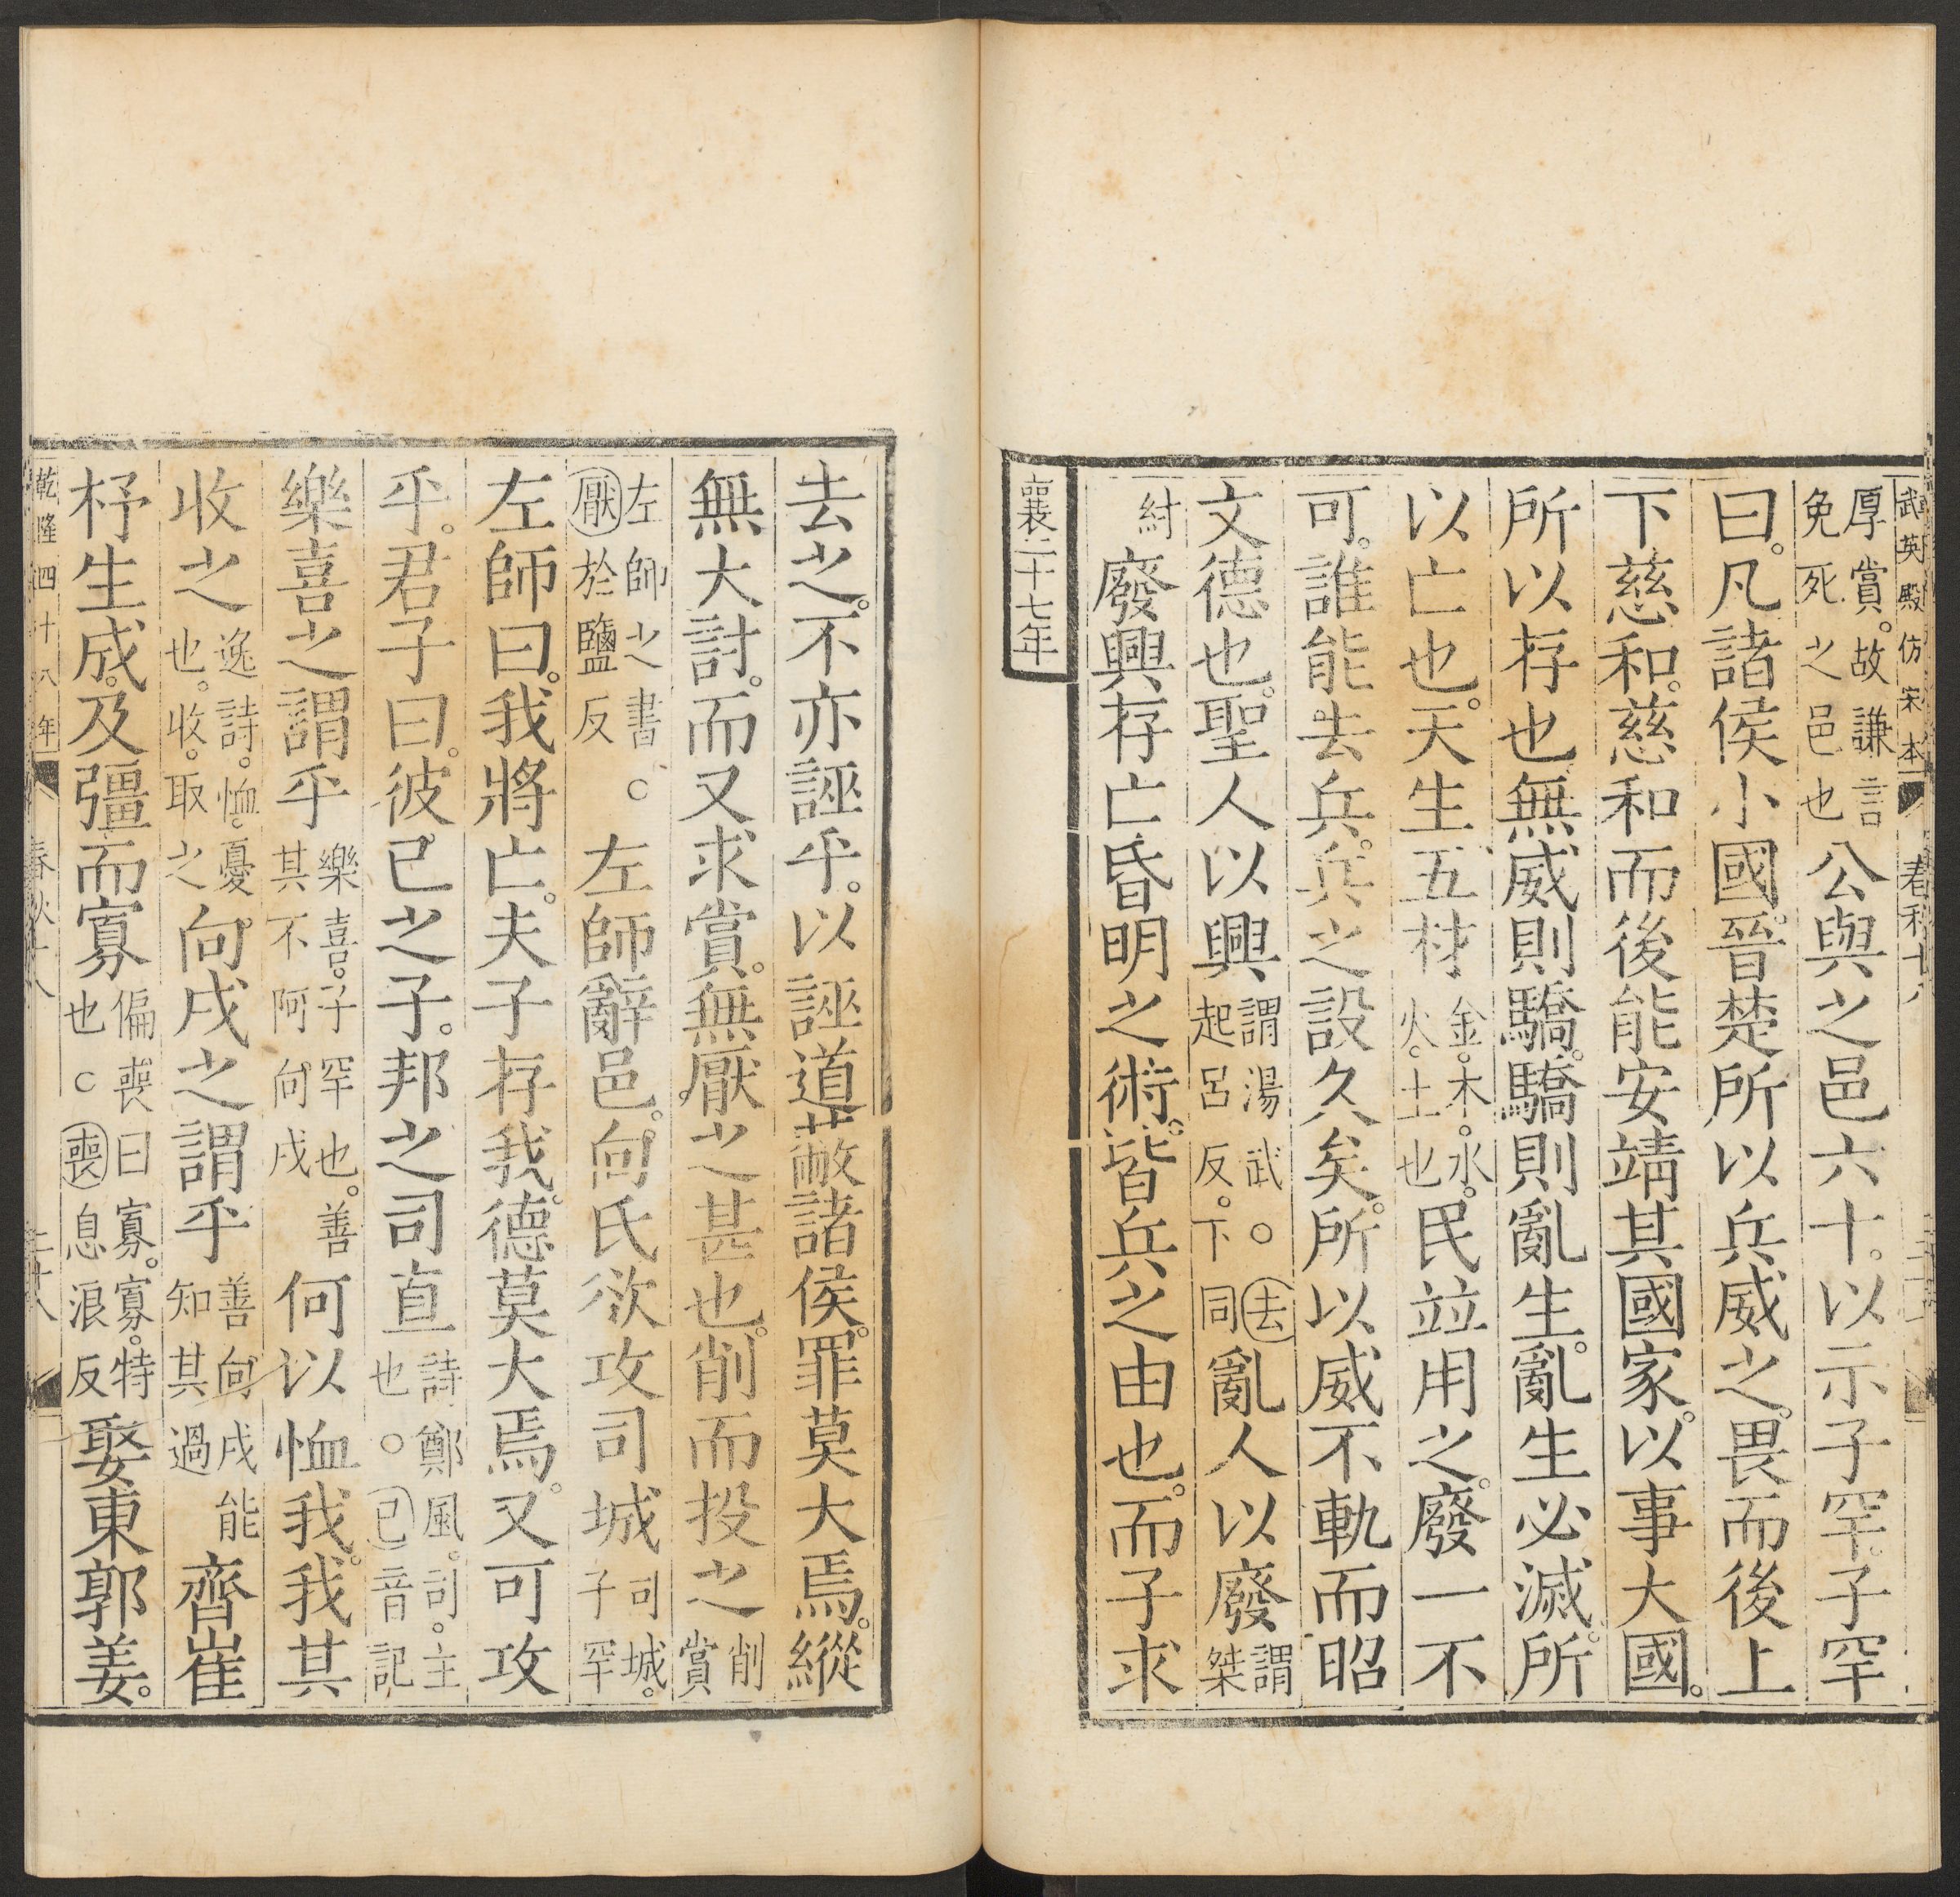 武英殿仿宋本 春秋十八
厚賞。故謙言免死之邑也公與之邑六十。以示子罕。子罕
曰。凡諸侯小國。晉楚所以兵威之。畏而後上
下慈和。慈和而後能安靖其國家。以事大國。
所以存也無威則驕。驕則亂生。亂生必滅。所
以亡也。天生五材金。木。水。火。土也民竝用之。廢一不
可。誰能去兵。兵之設久矣。所以威不軌而昭
文德也。聖人以興謂湯武○去起呂反。下同亂人以廢謂桀
紂廢興存亡昏明之術。皆兵之由也。而子求
襄二十七年
去之。不亦誣乎。以誣道蔽諸侯。罪莫大焉。縱
無大討。而又求賞。無厭之甚也。削而投之削賞
左師之書○厭於鹽反左師辭邑。向氏欲攻司城司城。子罕
左師曰。我將亡。夫子存我。德莫大焉。又可攻
乎。君子曰。彼己之子。邦之司直詩鄭風。司。主也○己音記
樂喜之謂乎樂喜。子罕也。善其不阿向戌何以恤我。我其
收之逸詩。恤。憂也。收。取之向戌之謂乎善向戌能知其過齊崔
杼生成。及彊而寡偏喪曰寡。寡。特也○喪息浪反娶東郭姜。
乾隆四十八年 春秋十八